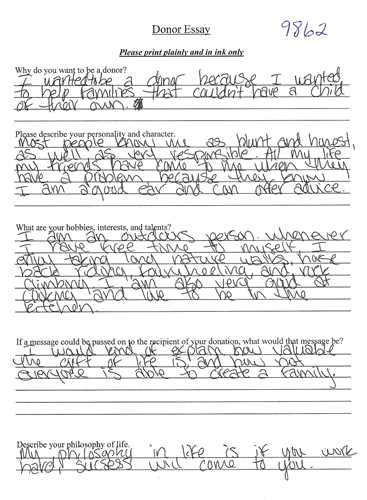 Donor Essay
9862
Please print plainly and in ink only
Why do you want to be a donor?
I wanted to be a donor because I wanted
to help families that couldn't have a child
of their own.
Please describe your personality and character.
Most people know me as blunt and honest,
as well as very responsible. All my life
my friends have come to me when they
have a problem because they know
I am a good ear and can offer advice.
What are your hobbies, interests, and talents?
I am an outdoors person. whenever
I have free time to myself, I
enjoy taking long nature walks, horse
back riding, fourwheeling, and, rock
climbing. I am also very good at
cooking and love to be in the
kitchen.
If a message could be passed on to the recipient of your donation, what would that message be?
I would kind of explain how valuable
the gift of life is and how not
everyone is able to create a family.
Describe your philosophy of life.
My philosophy in life is if you work
hard, sucsess will come to you.